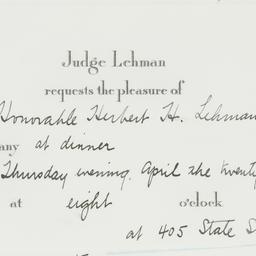 Judge Lehman
requests the pleasure of
Honorable Herbert H. Lehman
any at dinner
Thursday evening, April the twenty
at eight o'clock
at 405 State S